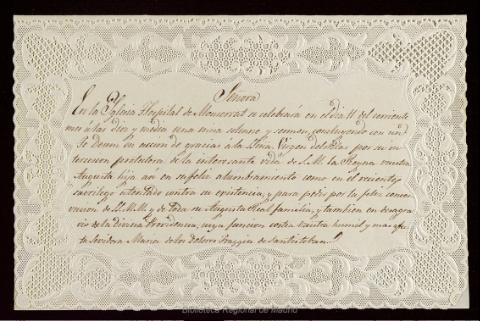 Señora
En la Yglesia Hospital de Monserrat se celebrará en el dia 11 del corriente
mes a las diez y media una misa solemne y sermon, concluyendo con un
Te Deum en accion de gracias a la Sma. Virgen del Pilar por su in
tercesion protectora de la interesante vida de S.M. la Reyna vuestra
Augusta hija asi en su feliz alumbramiento como en el reciente y
sacrilego atentado contra su existencia, y para pedir por la feliz conser
vacion de S.M. y de toda su Augusta Real familia, y tambien en desagra
vio de la Divina Providencia, cuya funcion costea vuestra humilde y mas afec
ta servidora Maria de los Dolores de Santisteban.
Biblioteca Regional de Madrid